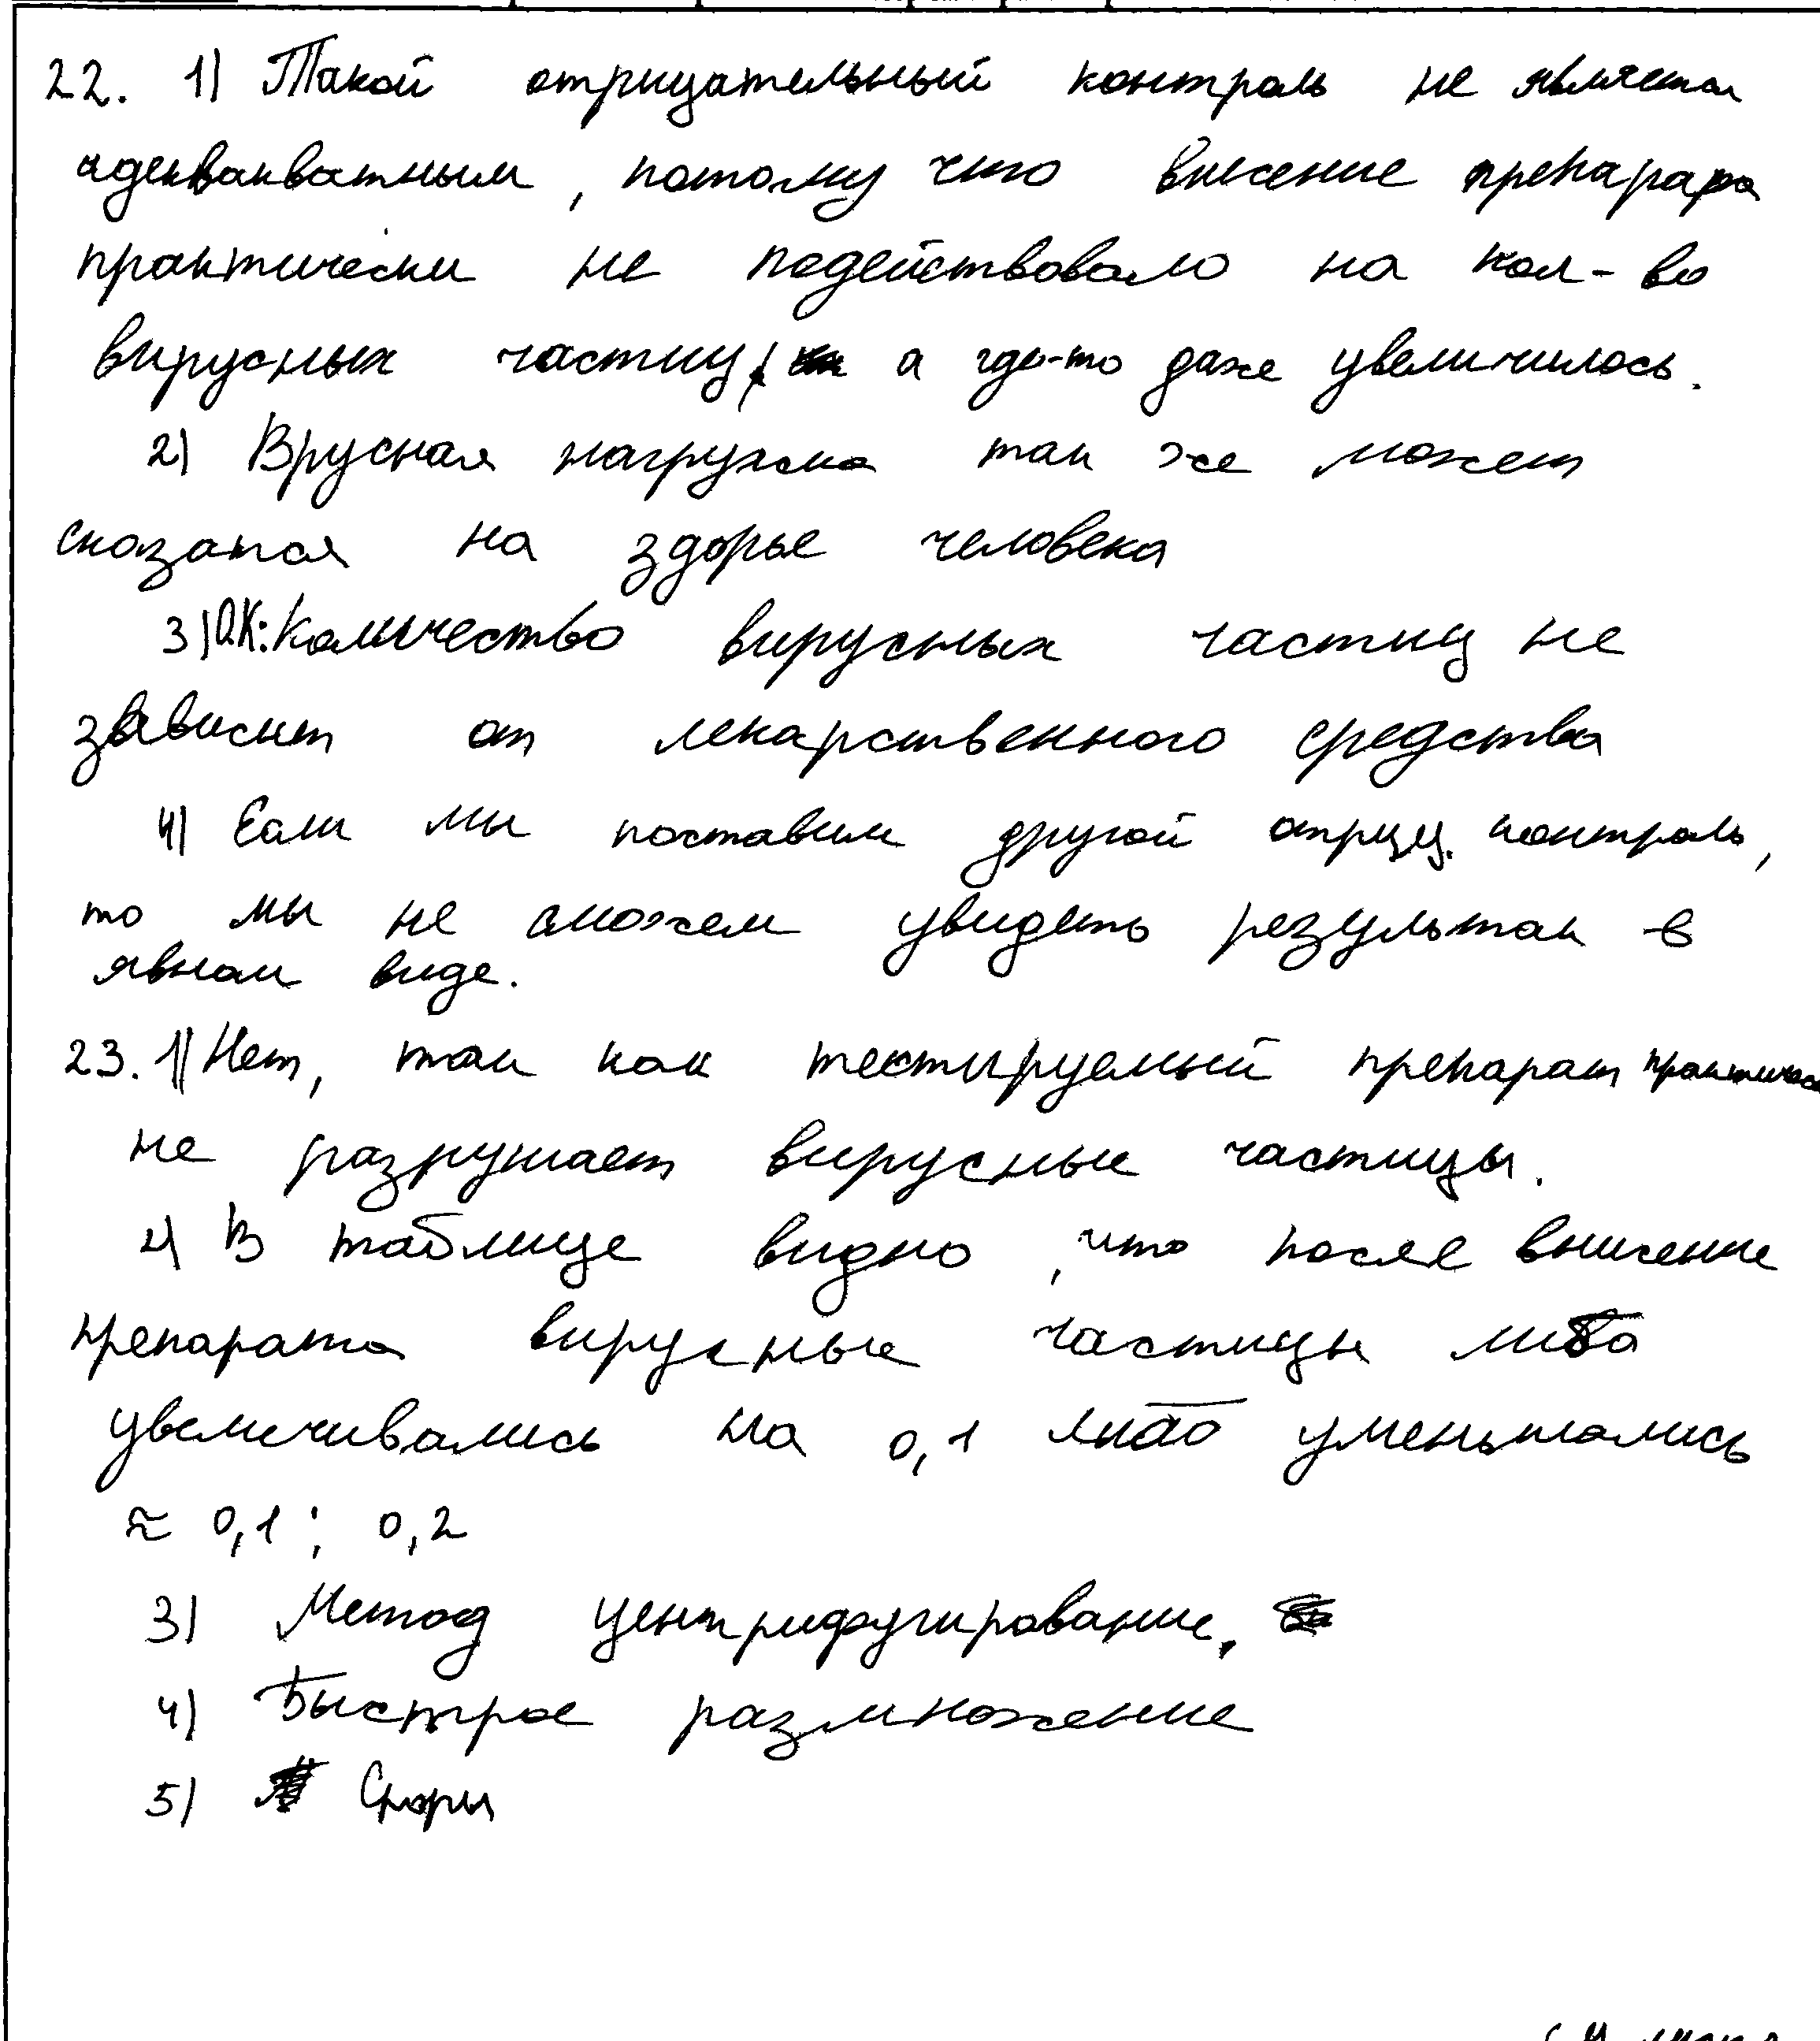 22. 1) Такой отрицательный контроль не является
адекванватным, потому что внесение препарара
практически не подействовало на кол-во
вирусных частиц, а где-то даже увеличилось.
2) Врусная нагрузка так же может
сказатся на здорье человека
3) О.К: Количество вирусных частиц не
зависит от лекарственного средства
4) Если мы поставим другой отриц. контроль,
то мы не сможем увидеть результат в
явном виде.
23. 1) Нет, так как тестируемый препарат
не разрушает вирусные частицы.
2) В таблице видно, что после внесение
препарата вирусные частицы либо
увеличивались на 0,1 либо уменьшались
≈ 0,1 ; 0,2
3) Метод центрифугирование.
4) Быстрое размножение
5) Споры